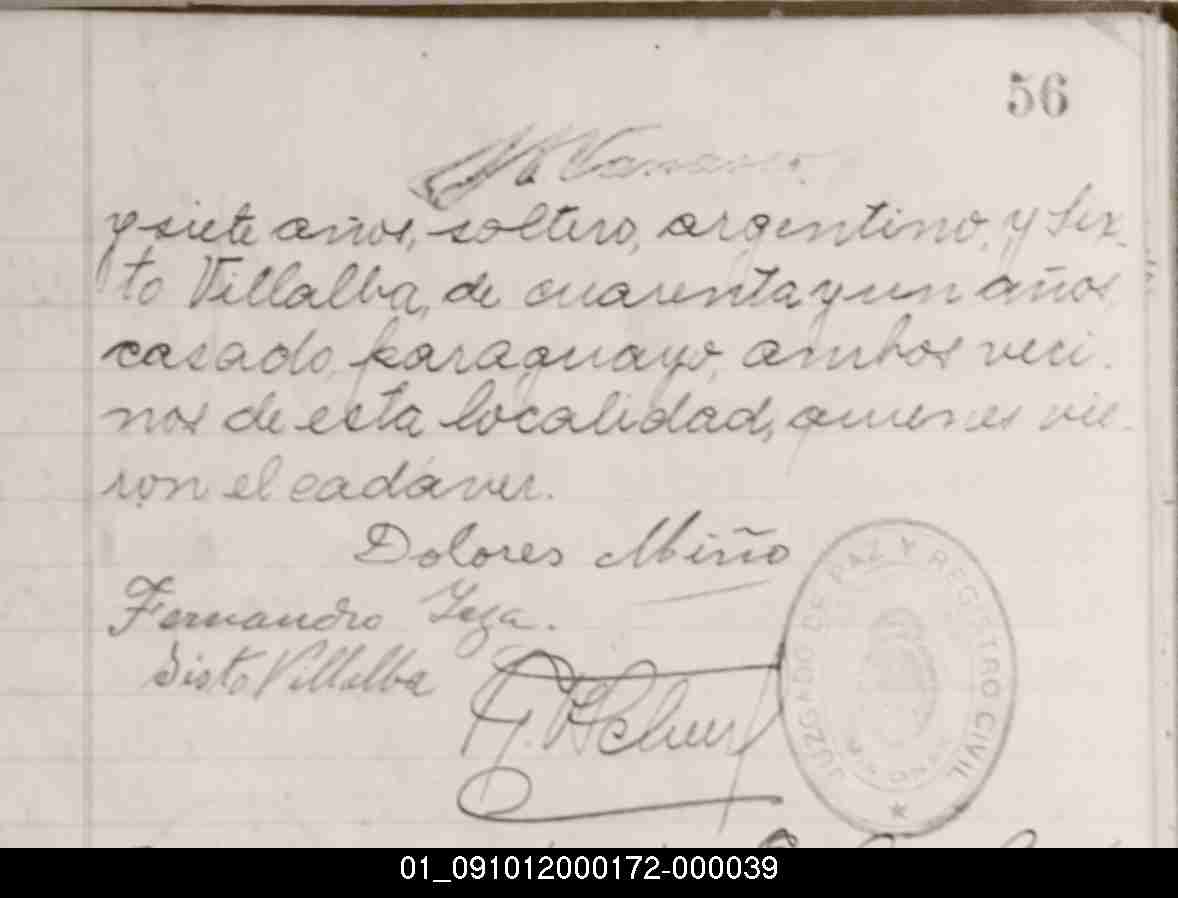 56
y siete años, soltero, argentino, y Six-
to Villalba, de cuarenta y un años,
casado, paraguayo, ambos veci-
nos de esta localidad, quienes vie-
ron el cadáver.
Dolores Miño
Fernando
Sisto Villalba
JUZGADO DE PAZ Y REGISTRO CIVIL
01_091012000172-000039